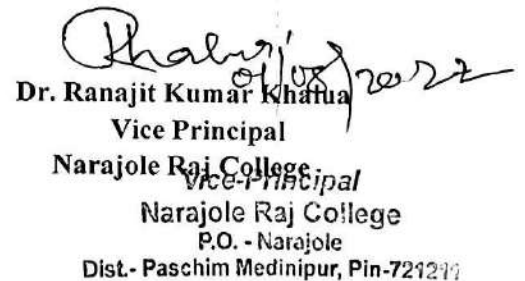 Khatua
01/08/2022
Dr. Ranajit Kumar Khatua
Vice Principal
Narajole Raj College
Vice-Principal
Narajole Raj College
P.O. - Narajole
Dist.- Paschim Medinipur, Pin-721211